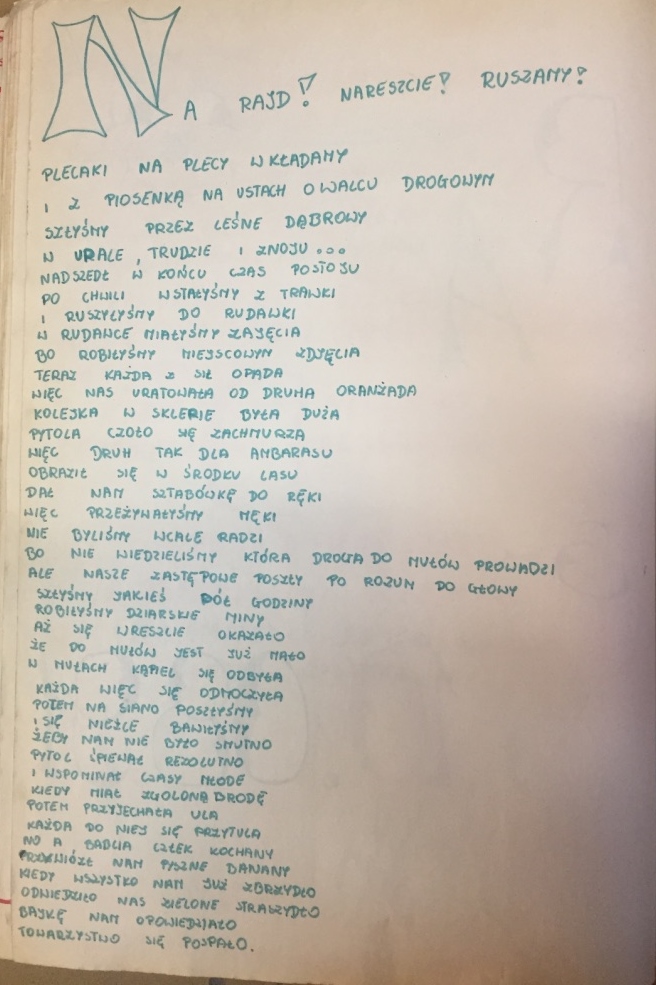 NA RAJD! NARESZCIE! RUSZAMY!
PLECAKI NA PLECY WKŁADAMY
I Z PIOSENKĄ NA USTACH O WALCU DROGOWYM
SZŁYŚMY PRZEZ LEŚNE DĄBROWY
W URALE, TRUDZIE I ZNOJU...
NADSZEDŁ W KOŃCU CZAS POSTOJU
PO CHWILI WSTAŁYŚMY Z TRAWKI
I RUSZYŁYŚMY DO RUDAWKI
W RUDAWCE MIAŁYŚMY ZAJĘCIA
BO ROBIŁYŚMY MIEJSCOWYM ZDJĘCIA
TERAZ KAŻDA Z SIŁ OPADA
WIĘC NAS URATOWAŁA OD DRUHA ORANŻADA
KOLEJKA W SKLEPIE BYŁA DUŻA
PYTOLA CZOŁO SIĘ ZACHMURZA
WIĘC DRUH TAK DLA AMBARASU
OBRAZIŁ SIĘ W ŚRODKU LASU
DAŁ NAM SZTABÓWKĘ DO RĘKI
WIĘC PRZEŻYWAŁYŚMY MĘKI
NIE BYLIŚMY WCALE RADZI
BO NIE WIEDZIELIŚMY KTÓRA DROGA DO MUŁÓW PROWADZI
ALE NASZE ZASTĘPOWE POSZŁY PO ROZUM DO GŁOWY
SZŁYŚMY JAKIEŚ PÓŁ GODZINY
ROBIŁYŚMY DZIARSKIE MINY
AŻ SIĘ WRESZCIE OKAZAŁO
ŻE DO MUŁÓW JEST JUŻ MAŁO
W MUŁACH KĄPIEL SIĘ ODBYŁA
KAŻDA WIĘC SIĘ ODMOCZYŁA
POTEM NA SIANO POSZŁYŚMY
I SIĘ NIEŹLE BAWIŁYŚMY
ŻEBY NAM NIE BYŁO SMUTNO
PYTOL ŚPIEWAŁ REZOLUTNO
I WSPOMINAŁ CZASY MŁODE
KIEDY MIAŁ ZGOLONĄ BRODĘ
POTEM PRZYJECHAŁA ULA
KAŻDA DO NIEJ SIĘ PRZYTULA
NO A BABCIA CZŁEK KOCHANY
PRZYWIÓZŁ NAM PYSZNE BANANY
KIEDY WSZYSTKO NAM JUŻ ZBRZYDŁO
ODWIEDZIŁO NAS ZIELONE STRASZYDŁO
BAJKĘ NAM OPOWIEDZIAŁO
TOWARZYSTWO SIĘ POSPAŁO.